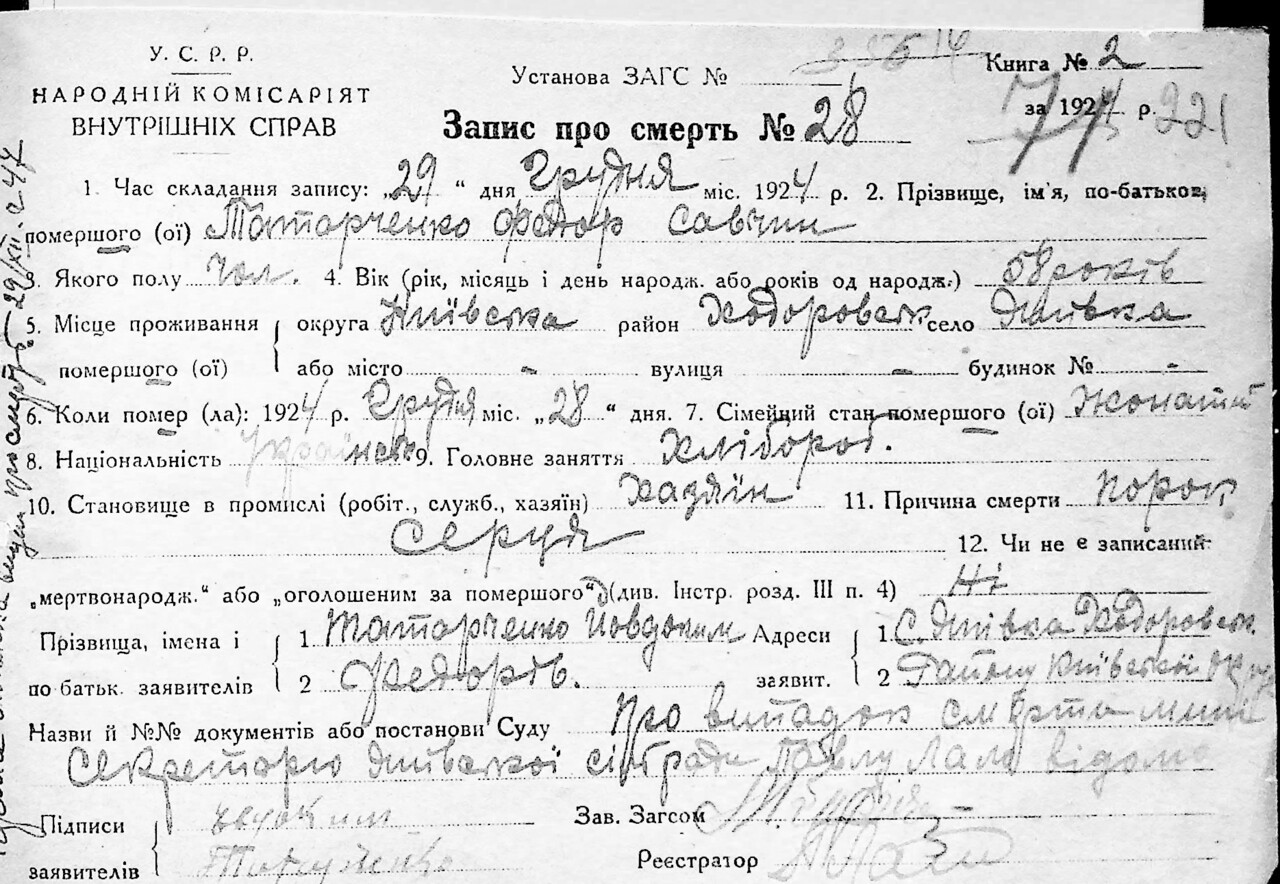 У. С. Р. Р.
НАРОДНІЙ КОМІСАРІЯТ
ВНУТРІШНІХ СПРАВ
Установа ЗАГС №
Книга № 2
за 1924 р. 221
Запис про смерть № 28
1. Час складання запису: „29“ дня Грудня міс. 1924 р. 2. Прізвище, ім'я, по-батькові,
помершого (ої) Татарченко Федор Савчин
3. Якого полу чол. 4. Вік (рік, місяць і день народж. або років од народж.) 58 років
5. Місце проживання помершого (ої) округа Київська район Ходоровськ село Янівка
або місто - вулиця - будинок № -
6. Коли помер (ла): 1924 р. Грудня міс. „28“ дня. 7. Сімейний стан помершого (ої) Жонатий
8. Національність Українськ 9. Головне заняття Хлібороб.
10. Становище в промислі (робіт., служб., хазяїн) Хазяїн 11. Причина смерти порок
серця 12. Чи не є записаний
„мертвонародж.“ або „оголошеним за помершого“ (див. Інстр. розд. III п. 4) Ні
Прізвища, імена і по батьк. заявителів 1 Татарченко Йовдоким Адреси заявит. 1 С. Янівка Ходоровськ.
2 Федорів. 2 Району Київської Окр
Назви й №№ документів або постанови Суду Про випадок смерти мині
Секретарю Янівської сільради Павлу відомо
Підписи заявителів Евдоким
Татарченко
Зав. Загсом
Реєстратор